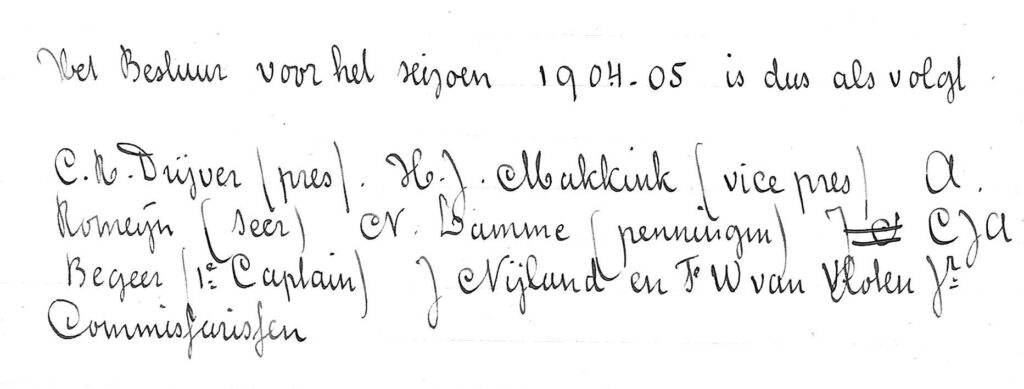 Het Bestuur voor het seizoen 1904-05 is dus als volgt.
C.R. Drijver (pres). H.J. Makkink (vice pres) A.
Romeijn (secr) N. Damme (penningm) C J A
Begeer (1e Captain) J Nijland en Fr W van Vloten Jr
Commissarissen